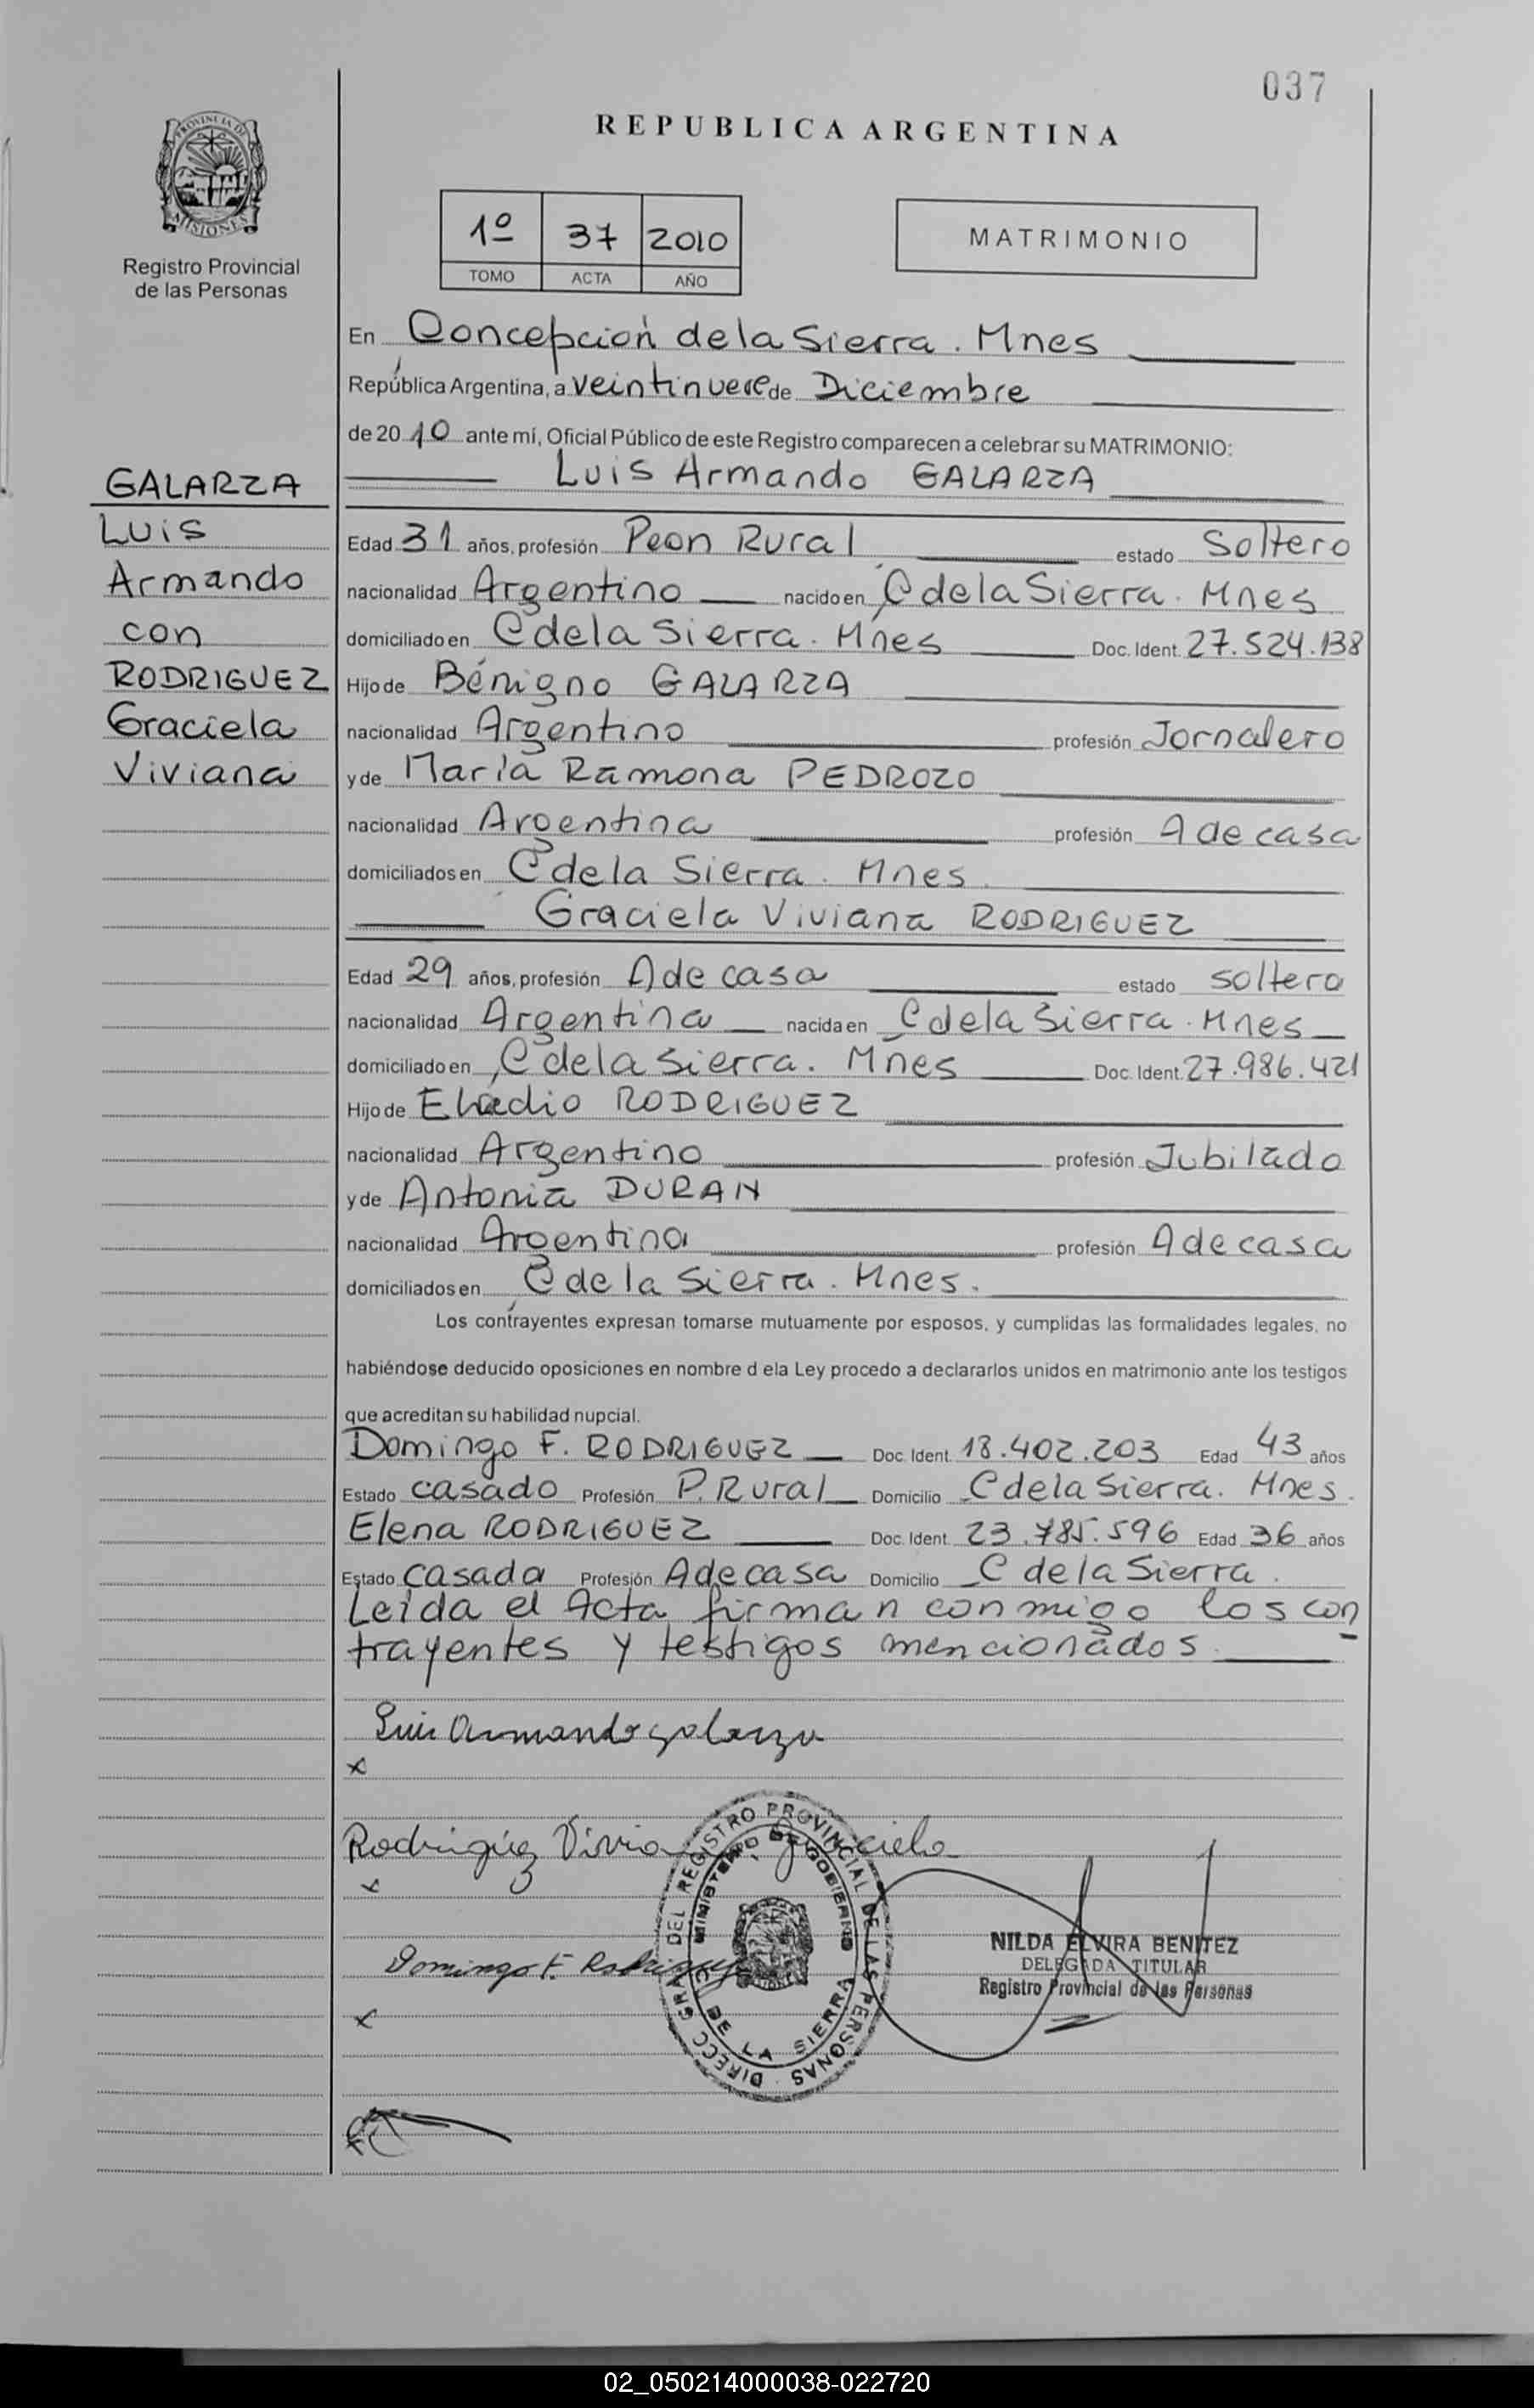 037
REPUBLICA ARGENTINA
PROVINCIA DE MISIONES
Registro Provincial
de las Personas
1º 37 2010
TOMO ACTA AÑO
MATRIMONIO
En Concepción de la Sierra. Mnes
República Argentina, a veintinueve de Diciembre
de 20 10 ante mí, Oficial Público de este Registro comparecen a celebrar su MATRIMONIO:
Luis Armando GALARZA
GALARZA
Luis
Armando
con
RODRIGUEZ
Graciela
Viviana
Edad 31 años, profesión Peon Rural estado Soltero
nacionalidad Argentino nacido en C de la Sierra. Mnes
domiciliado en C de la Sierra. Mnes Doc. Ident. 27.524.138
Hijo de Benigno GALARZA
nacionalidad Argentino profesión Jornalero
y de María Ramona PEDROZO
nacionalidad Argentina profesión A de casa
domiciliados en C de la Sierra. Mnes.
Graciela Viviana RODRIGUEZ
Edad 29 años, profesión A de casa estado soltera
nacionalidad Argentina nacida en C de la Sierra. Mnes
domiciliado en C de la Sierra. Mnes Doc. Ident. 27.986.421
Hijo de RODRIGUEZ
nacionalidad Argentino profesión Jubilado
y de Antonia DURAN
nacionalidad Argentina profesión A de casa
domiciliados en C de la Sierra. Mnes.
Los contrayentes expresan tomarse mutuamente por esposos, y cumplidas las formalidades legales, no
habiéndose deducido oposiciones en nombre d ela Ley procedo a declararlos unidos en matrimonio ante los testigos
que acreditan su habilidad nupcial.
Domingo F. RODRIGUEZ Doc. Ident. 18.402.203 Edad 43 años
Estado casado Profesión P. Rural Domicilio C de la Sierra. Mnes.
Elena RODRIGUEZ Doc. Ident. 23.785.596 Edad 36 años
Estado casada Profesión A de casa Domicilio C de la Sierra.
Leída el Acta firman conmigo los con
trayentes y testigos mencionados.
Luis Armando galarza
x
Rodriguez Viviana Graciela
x
Domingo F. Rodriguez
x
DIRECC GRAL DEL REGISTRO PROVINCIAL DE LAS PERSONAS
MINISTERIO DE GOBIERNO
C DE LA SIERRA
NILDA ELVIRA BENITEZ
DELEGADA TITULAR
Registro Provincial de las Personas
02_050214000038-022720